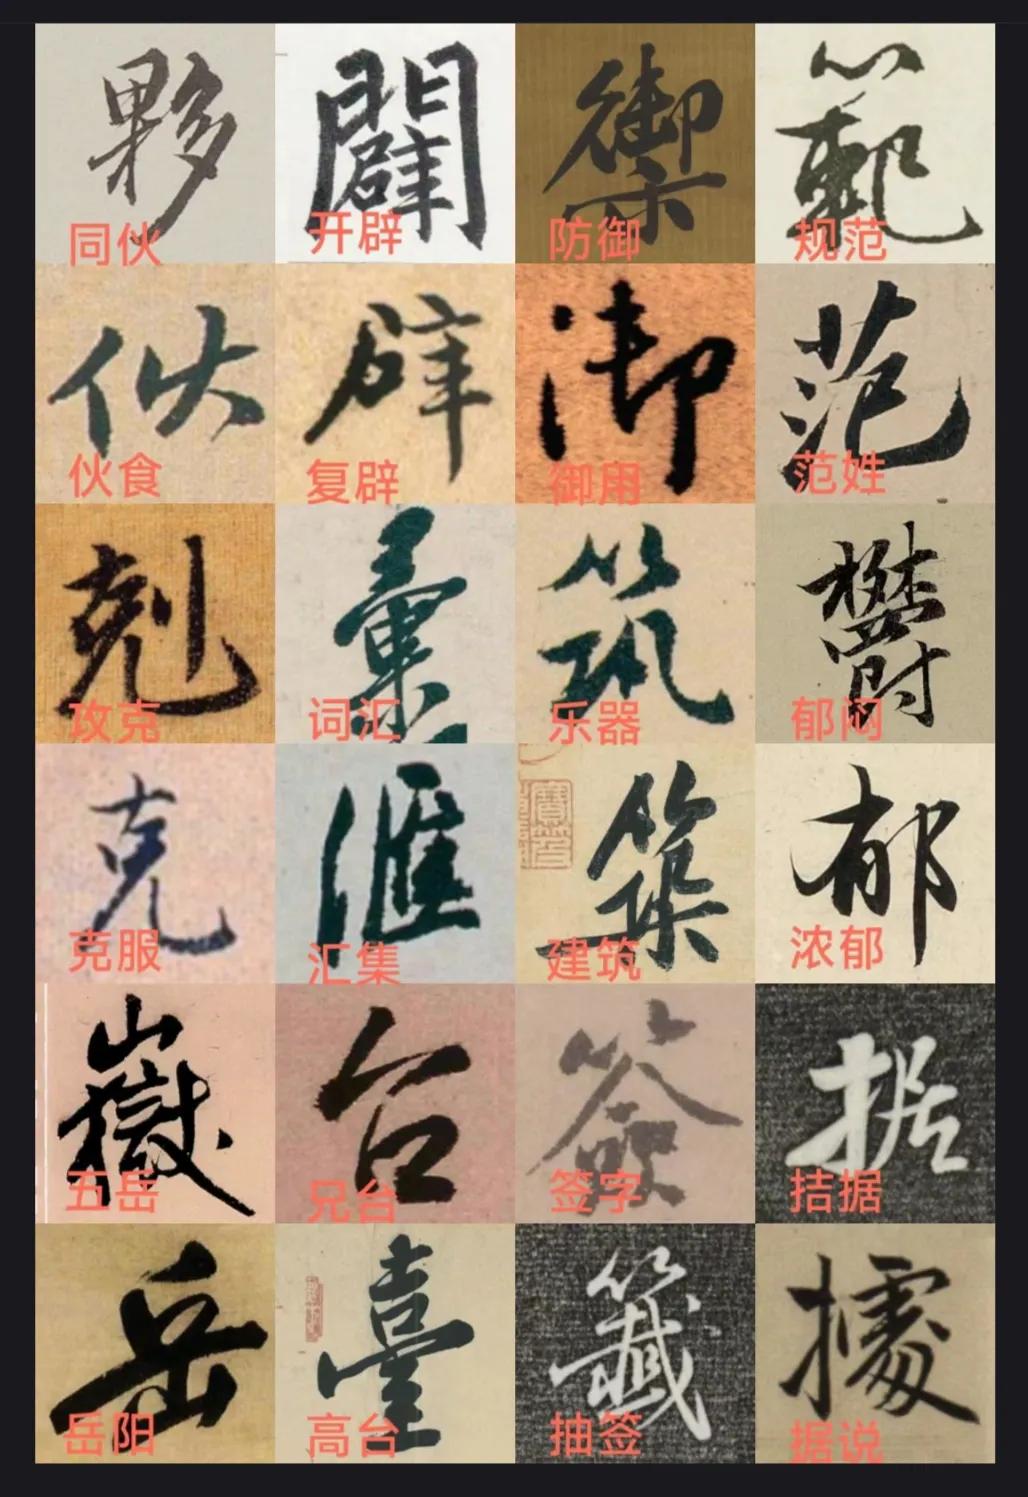 夥 闢 禦 範
同伙 开辟 防御 规范
伙 辟 御 范
伙食 复辟 御用 范姓
剋 彙 筑 鬱
攻克 词汇 乐器 郁闷
克 匯 築 郁
克服 汇集 建筑 浓郁
嶽 台 簽 据
五岳 兄台 签字 拮据
岳 臺 籤 據
岳阳 高台 抽签 据说